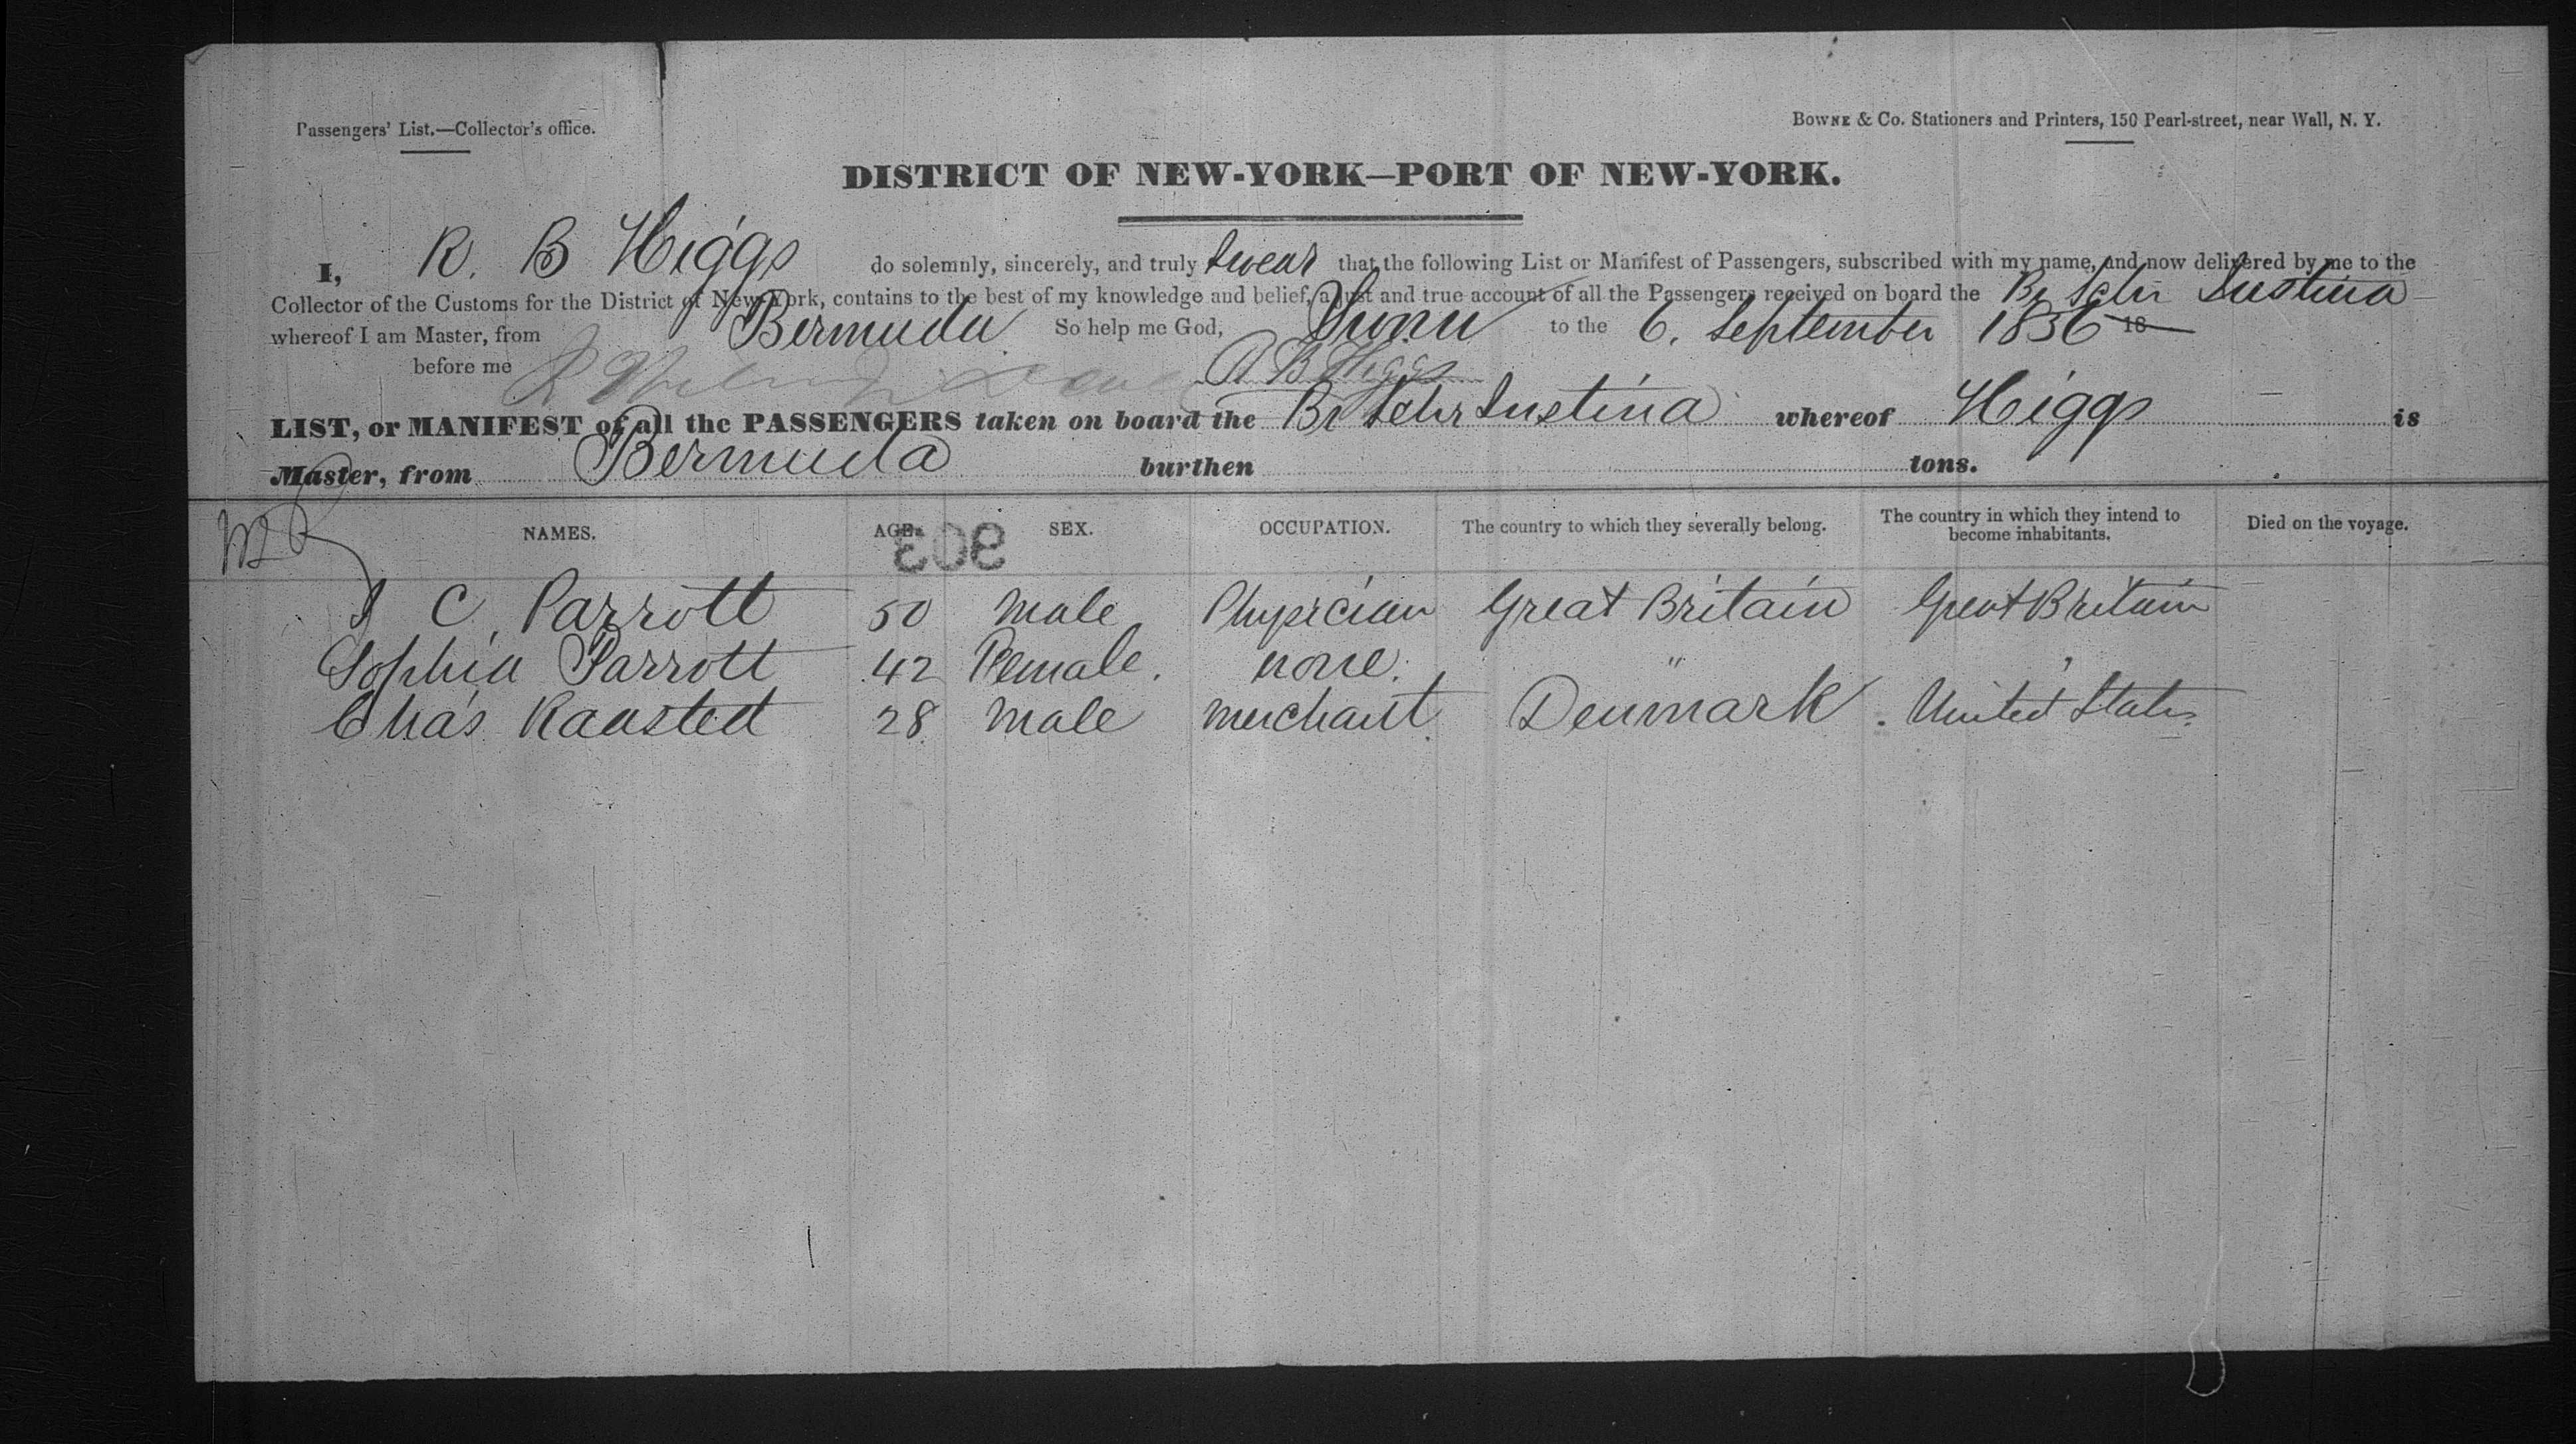 Passengers' List.—Collector's office.
Bowne & Co. Stationers and Printers, 150 Pearl-street, near Wall, N. Y.
DISTRICT OF NEW-YORK—PORT OF NEW-YORK.
I, R. B Higgs do solemnly, sincerely, and truly swear that the following List or Manifest of Passengers, subscribed with my name, and now delivered by me to the
Collector of the Customs for the District of New-York, contains to the best of my knowledge and belief, a just and true account of all the Passengers received on board the Br Schr Justina
whereof I am Master, from Bermuda So help me God, Sworn to the 6. September 1856 18
before me R B Higgs
LIST, or MANIFEST of all the PASSENGERS taken on board the Br Schr Justina whereof Higgs is
Master, from Bermuda burthen tons.
NAMES. AGE. SEX. OCCUPATION. The country to which they severally belong. The country in which they intend to become inhabitants. Died on the voyage.
903
J C. Parrott 50 Male Physician Great Britain Great Britain
Sophia Parrott 42 Female. none. " "
Chas Raasted 28 Male merchant Denmark. United States.